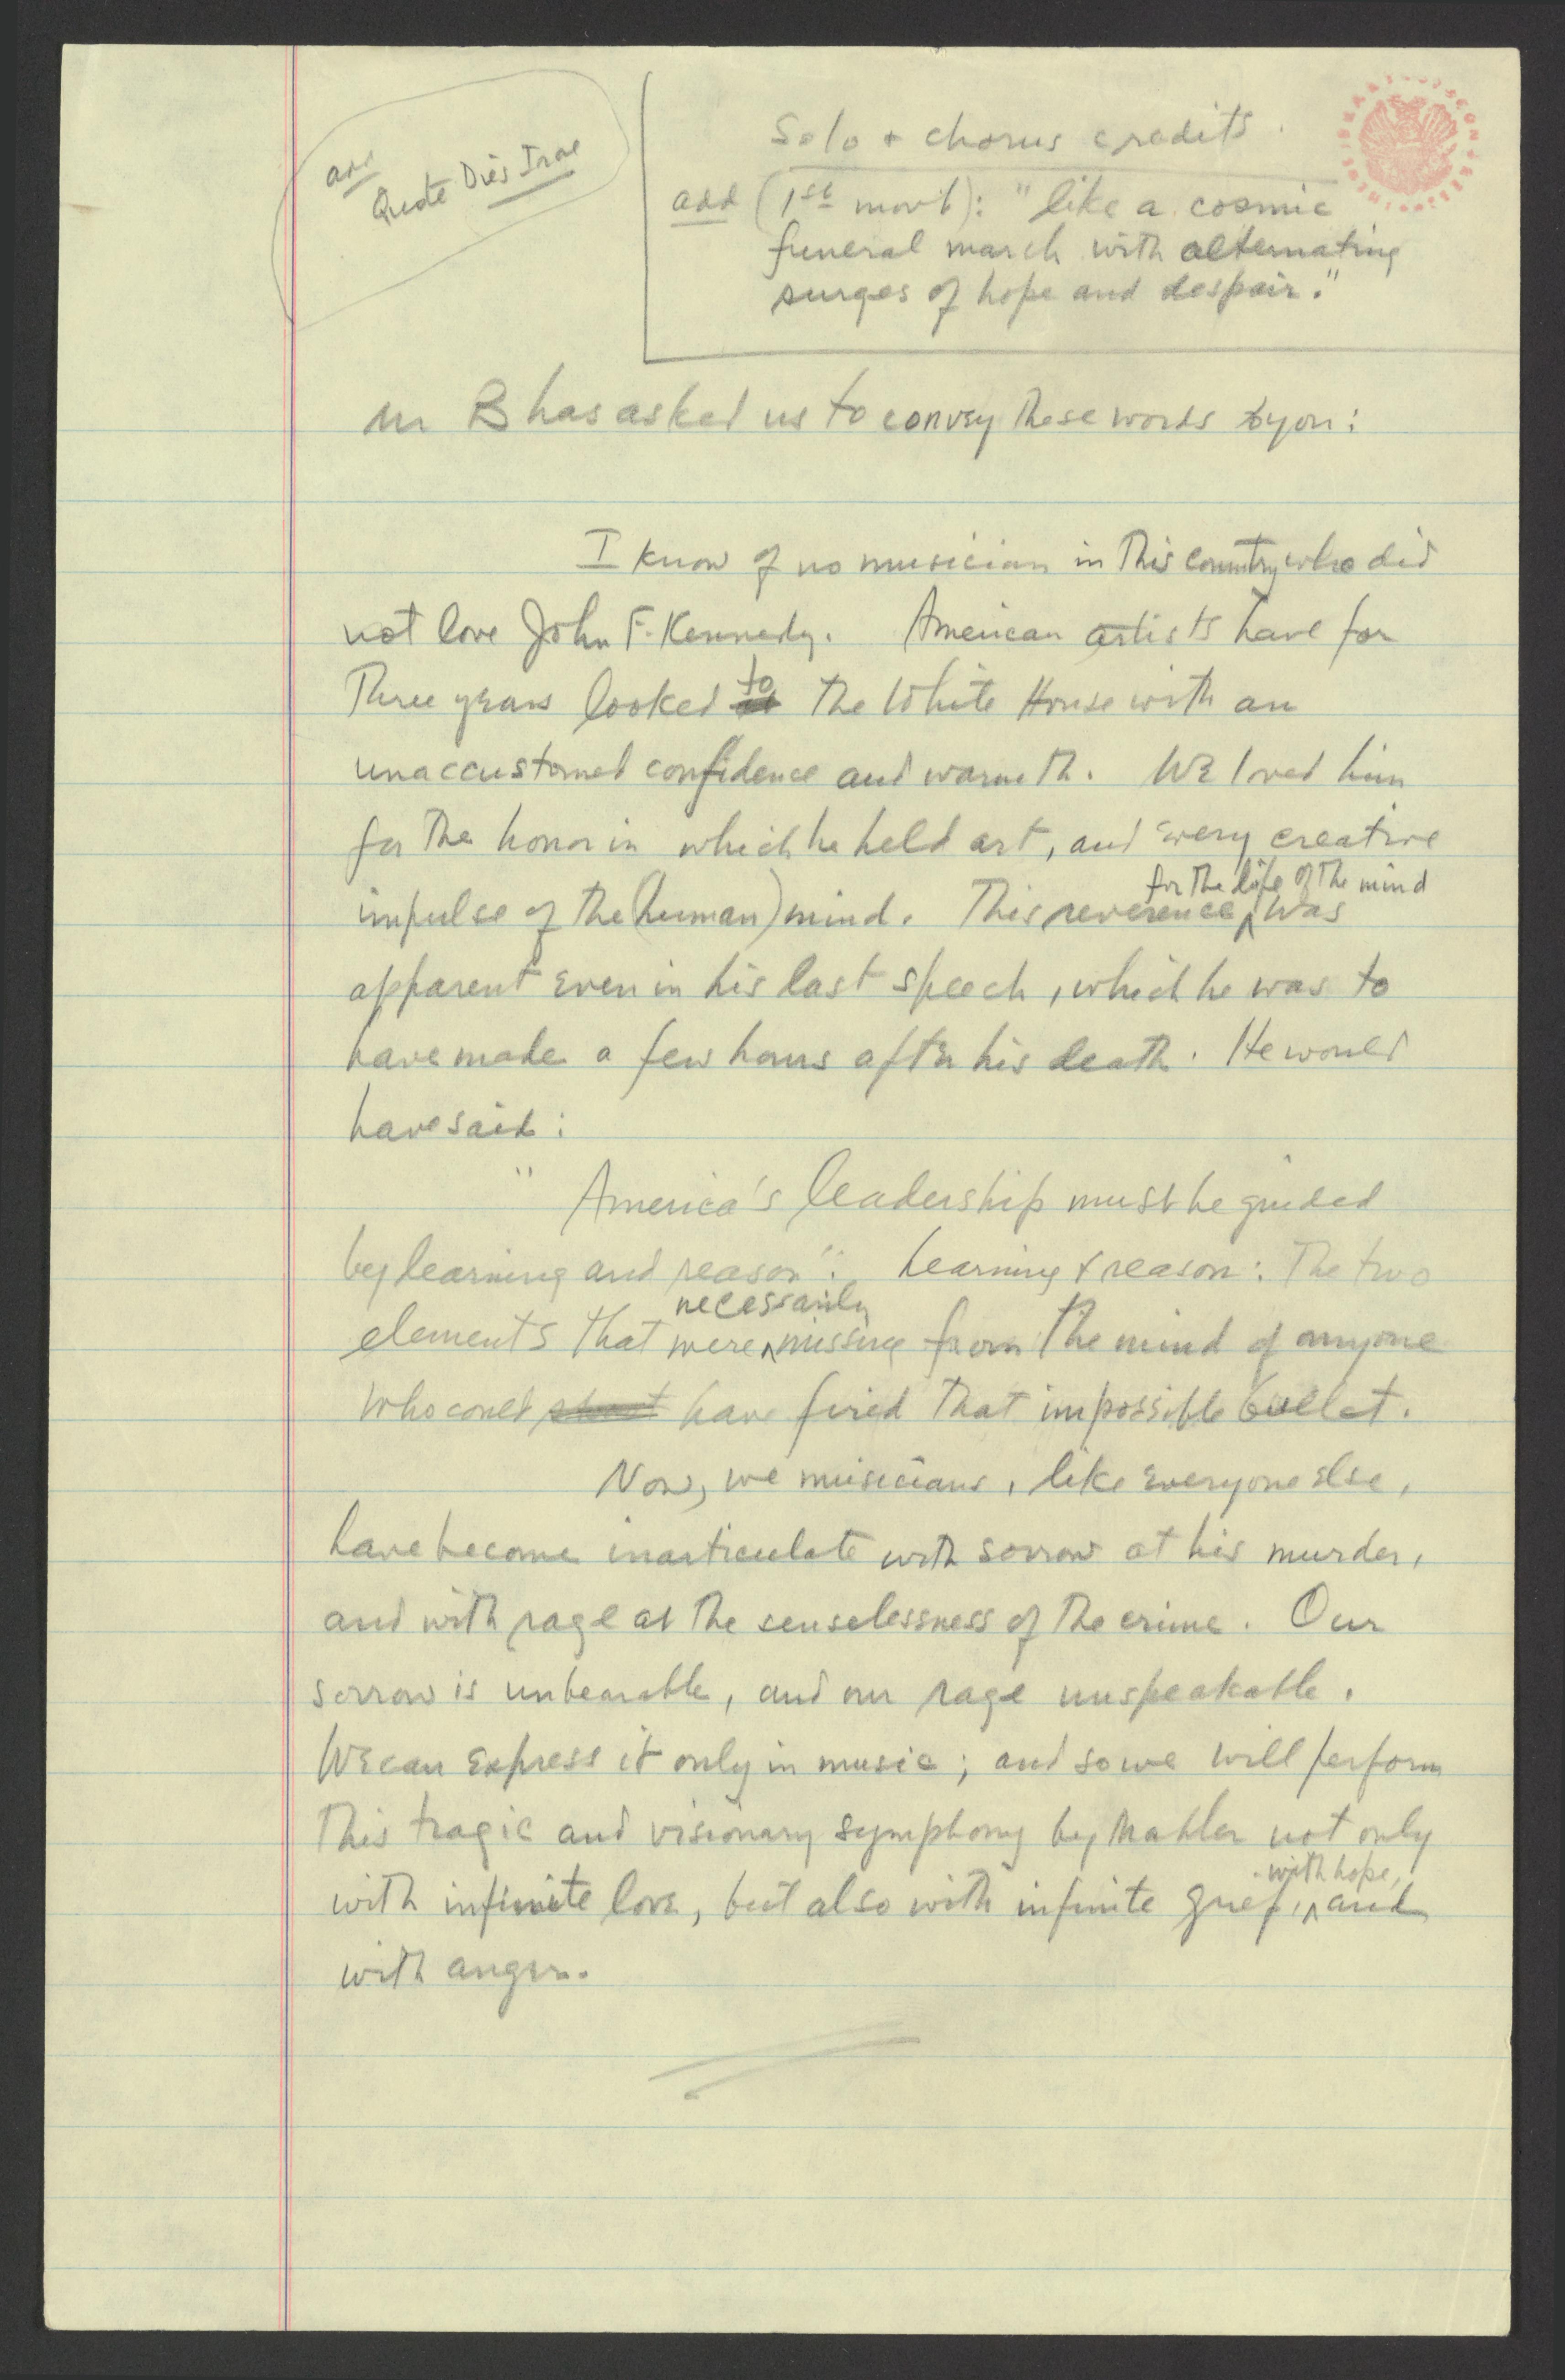 add
Quote Dies Irae
Solo + chorus credits.
add (1st movt): "like a cosmic
funeral march with alternating
surges of hope and despair."
Mr B has asked us to convey these words to you:
I know of no musician in this country who did
not love John F. Kennedy. American artists have for
three years looked to the White House with an
unaccustomed confidence and warmth. We loved him
for the honor in which he held art, and every creative
impulse of the (human) mind. This reverence for the life of the mind was
apparent even in his last speech, which he was to
have made a few hours after his death. He would
have said:
"America's leadership must be guided
by learning and reason". Learning & reason: the two
elements that were necessarily missing from the mind of anyone
who could have fired that impossible bullet.
Now, we musicians, like everyone else,
have become inarticulate with sorrow at his murder,
and with rage at the senselessness of the crime. Our
sorrow is unbearable, and our rage unspeakable.
We can express it only in music; and so we will perform
this tragic and visionary symphony by Mahler not only
with infinite love, but also with infinite grief, with hope, and
with anger.